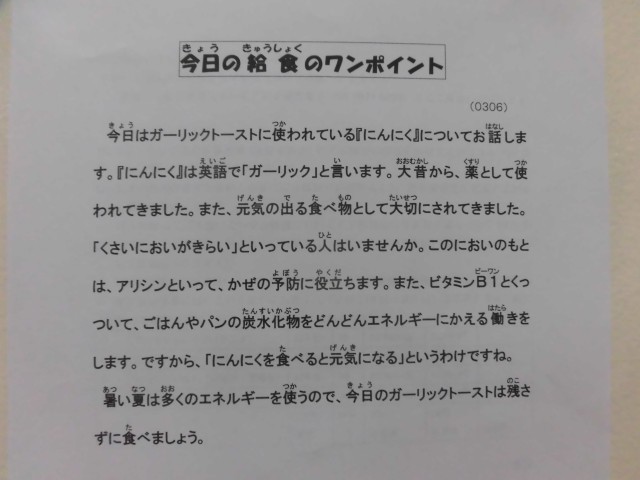 今日の給食のワンポイント
（0306）
今日はガーリックトーストに使われている『にんにく』についてお話しま
す。『にんにく』は英語で「ガーリック」と言います。大昔から、薬として使
われてきました。また、元気の出る食べ物として大切にされてきました。
「くさいにおいがきらい」といっている人はいませんか。このにおいのもと
は、アリシンといって、かぜの予防に役立ちます。また、ビタミンB1とくっ
ついて、ごはんやパンの炭水化物をどんどんエネルギーにかえる働きを
します。ですから、「にんにくを食べると元気になる」というわけですね。
暑い夏は多くのエネルギーを使うので、今日のガーリックトーストは残さ
ずに食べましょう。